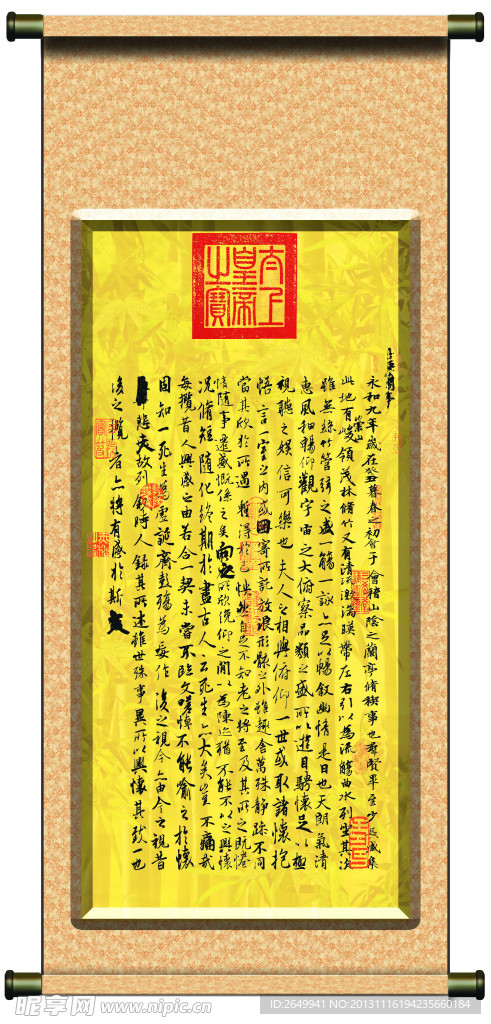 太上皇帝之寶
永和九年歲在癸丑暮春之初會于會稽山陰之蘭亭脩稧事也羣賢畢至少長咸集
此地有崇山峻領茂林脩竹又有清流激湍暎帶左右引以為流觴曲水列坐其次
雖無絲竹管弦之盛一觴一詠亦足以暢敘幽情是日也天朗氣清
惠風和暢仰觀宇宙之大俯察品類之盛所以遊目騁懷足以極
視聽之娛信可樂也夫人之相與俯仰一世或取諸懷抱
悟言一室之內或因寄所託放浪形骸之外雖趣舍萬殊靜躁不同
當其欣於所遇暫得於己快然自足不知老之將至及其所之既惓
情隨事遷感慨係之矣向之所欣俛仰之間以為陳迹猶不能不以之興懷
況脩短隨化終期於盡古人云死生亦大矣豈不痛哉
每攬昔人興感之由若合一契未嘗不臨文嗟悼不能喻之於懷
固知一死生為虛誕齊彭殤為妄作後之視今亦由今之視昔
悲夫故列敘時人錄其所述雖世殊事異所以興懷其致一也
後之攬者亦將有感於斯文
昵享网 www.nipic.cn
ID:2649941 NO:20131116194235660184